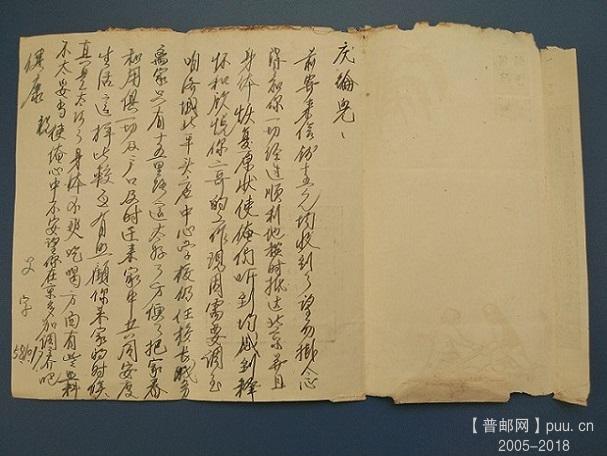 庆纶儿、
前寄来信钱十五元均收到了望勿挂念
深知你一切经过顺利地按时抵达北京并且
身体恢复原状使俺们听到均感到释
怀和欣悦你二哥的工作现因需要调至
咱济城北平头店中心学校仍任校长职务
离家只有十五里路这太好了方便了把家眷
和用俱一切及户口及时迁来家中共同安度
生活这样比较互有照顾你来家的时候
真是太巧了身体不爽吃喝方面有些照料
不太妥当使俺心中不安望你在京多加调养吧
健康
父字
58.
【普邮网】puu.cn
2005-2018